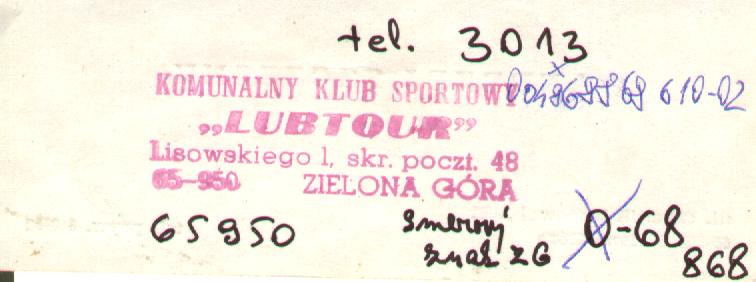 tel. 3013
KOMUNALNY KLUB SPORTOWY
„LUBTOUR”
Lisowskiego 1, skr. poczt. 48
65-950 ZIELONA GÓRA
65950
směrový
znak ZG
0-68
868